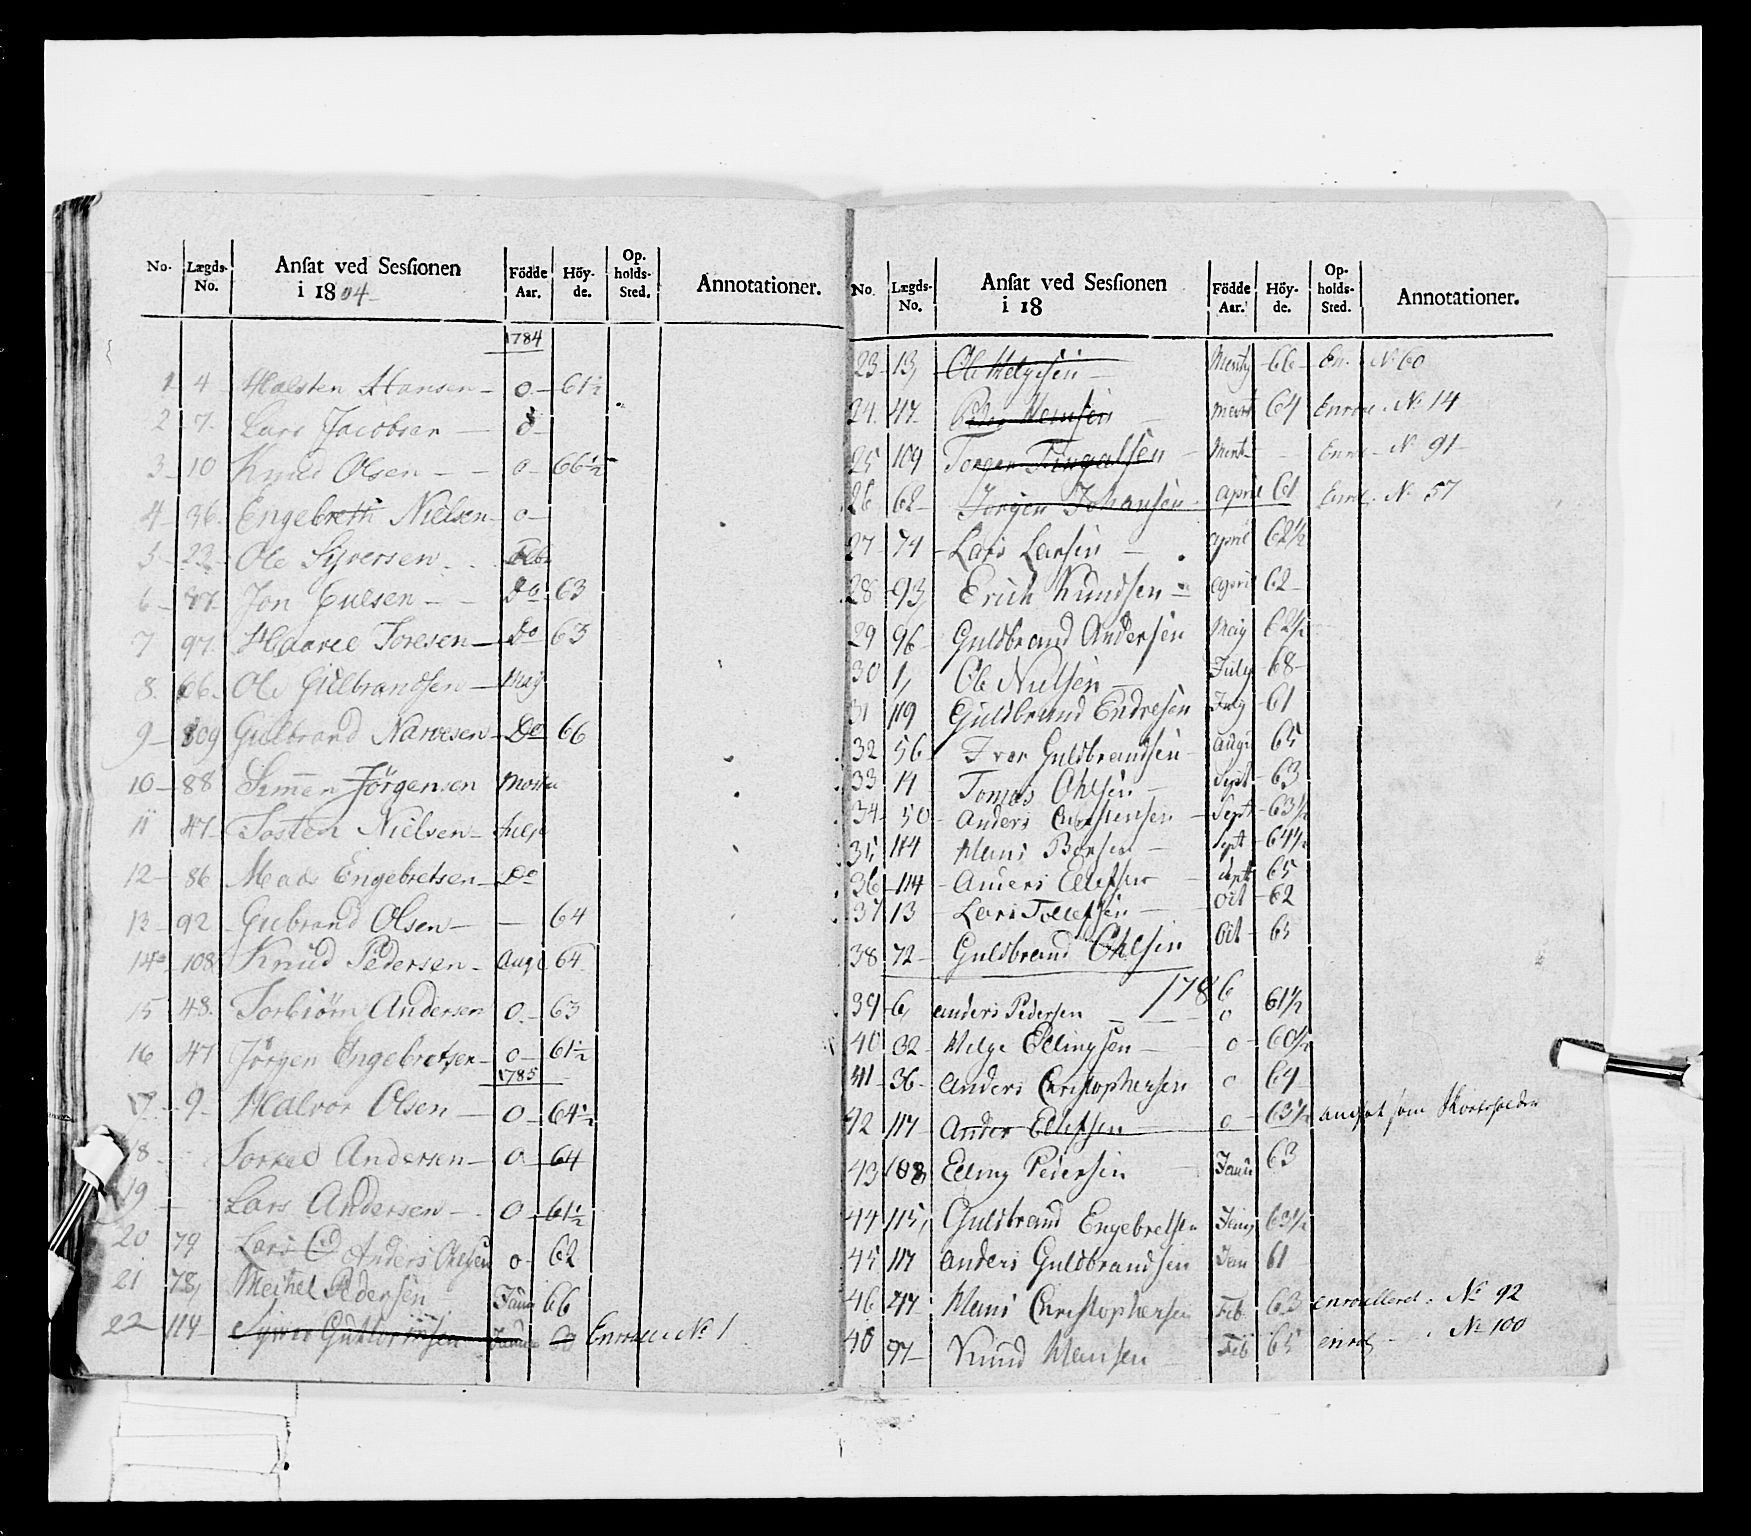 No. Lægds-No. Ansat ved Sessionen i 1804 Födde Aar. Höy-de. Op-holds-Sted. Annotationer.
1784
1 4 Halsten Hansen - o - 61½
2 7 Lars Jacobsen - o
3 10 Knud Olsen - - o - 66½
4 36 Engebreth Nielsen - o -
5 23 Ole Syversen Feb
6 Jon - - Do 63
7 97 Haavel Toresen - Do 63
8 66 Ole Gulbrandsen - May
9 109 Gulbrand Narvesen - Do 66
10 88 Simen Jörgensen
11 47 Tosten Nielsen -
12 86 Mads Engebretsen - Do
13 92 Gubrand Olsen - - 64
14 108 Knud Pedersen - Aug 64
15 48 Torbiörn Andersen o - 63
16 47 Jörgen Engebretsen - o - 61½
1785
17 9 Halvor Olsen - o - 64½
18 Torkel Andersen - o 64
19 - Lars Andersen - o - 61½
20 79 Lars Anders Ohlsen o - 62
21 78 Meikel Pedersen Janu 66
22 114 Syver Guttormsen Janua Enroll No 1
No. Lægds-No. Ansat ved Sessionen i 18 Födde Aar. Höy-de. Op-holds-Sted. Annotationer.
23 13 Ole Helgesen 66 En. No 60
24 47 Peder Hansen 64 Enroll No 14
25 109 Torger - Enrol No 91
26 62 Jörgen Johansen april 61 Enrol. No 57
27 74 Lars Larsen - april 62½
28 93 Erich Knudsen - april 62
29 96 Guldbrand Andersen May 62½
30 1 Ole Nielsen - July 68
31 119 Guldbrand Endresen July 61
32 56 Iver Guldbrandsen augt 65
33 14 Tomas Ohlsen - Sept 63
34 50 Anders Christensen - Sept 63½
35 114 Hans - Sept 64½
36 114 Anders Ellefsen - Sept 65
37 13 Lars Tollefsen - Oct 62
38 72 Guldbrand Ohlsen Oct 65
1786
39 6 anders Pedersen - o 61½
40 32 Helge Ellingsen - o 60½
41 36 anders Christophersen o 64
42 117 Ander Ellefsen o 63½ ansat som
43 108 Elling Pedersen Janu 63
44 115 Guldbrand Engebretsen Janu 63½
45 117 anders Guldbrandsen Jan 61
46 47 Hans Christophersen Feb 63 enroulleret No 92
48 97 Knud Hansen Feb 65 enrol No 100